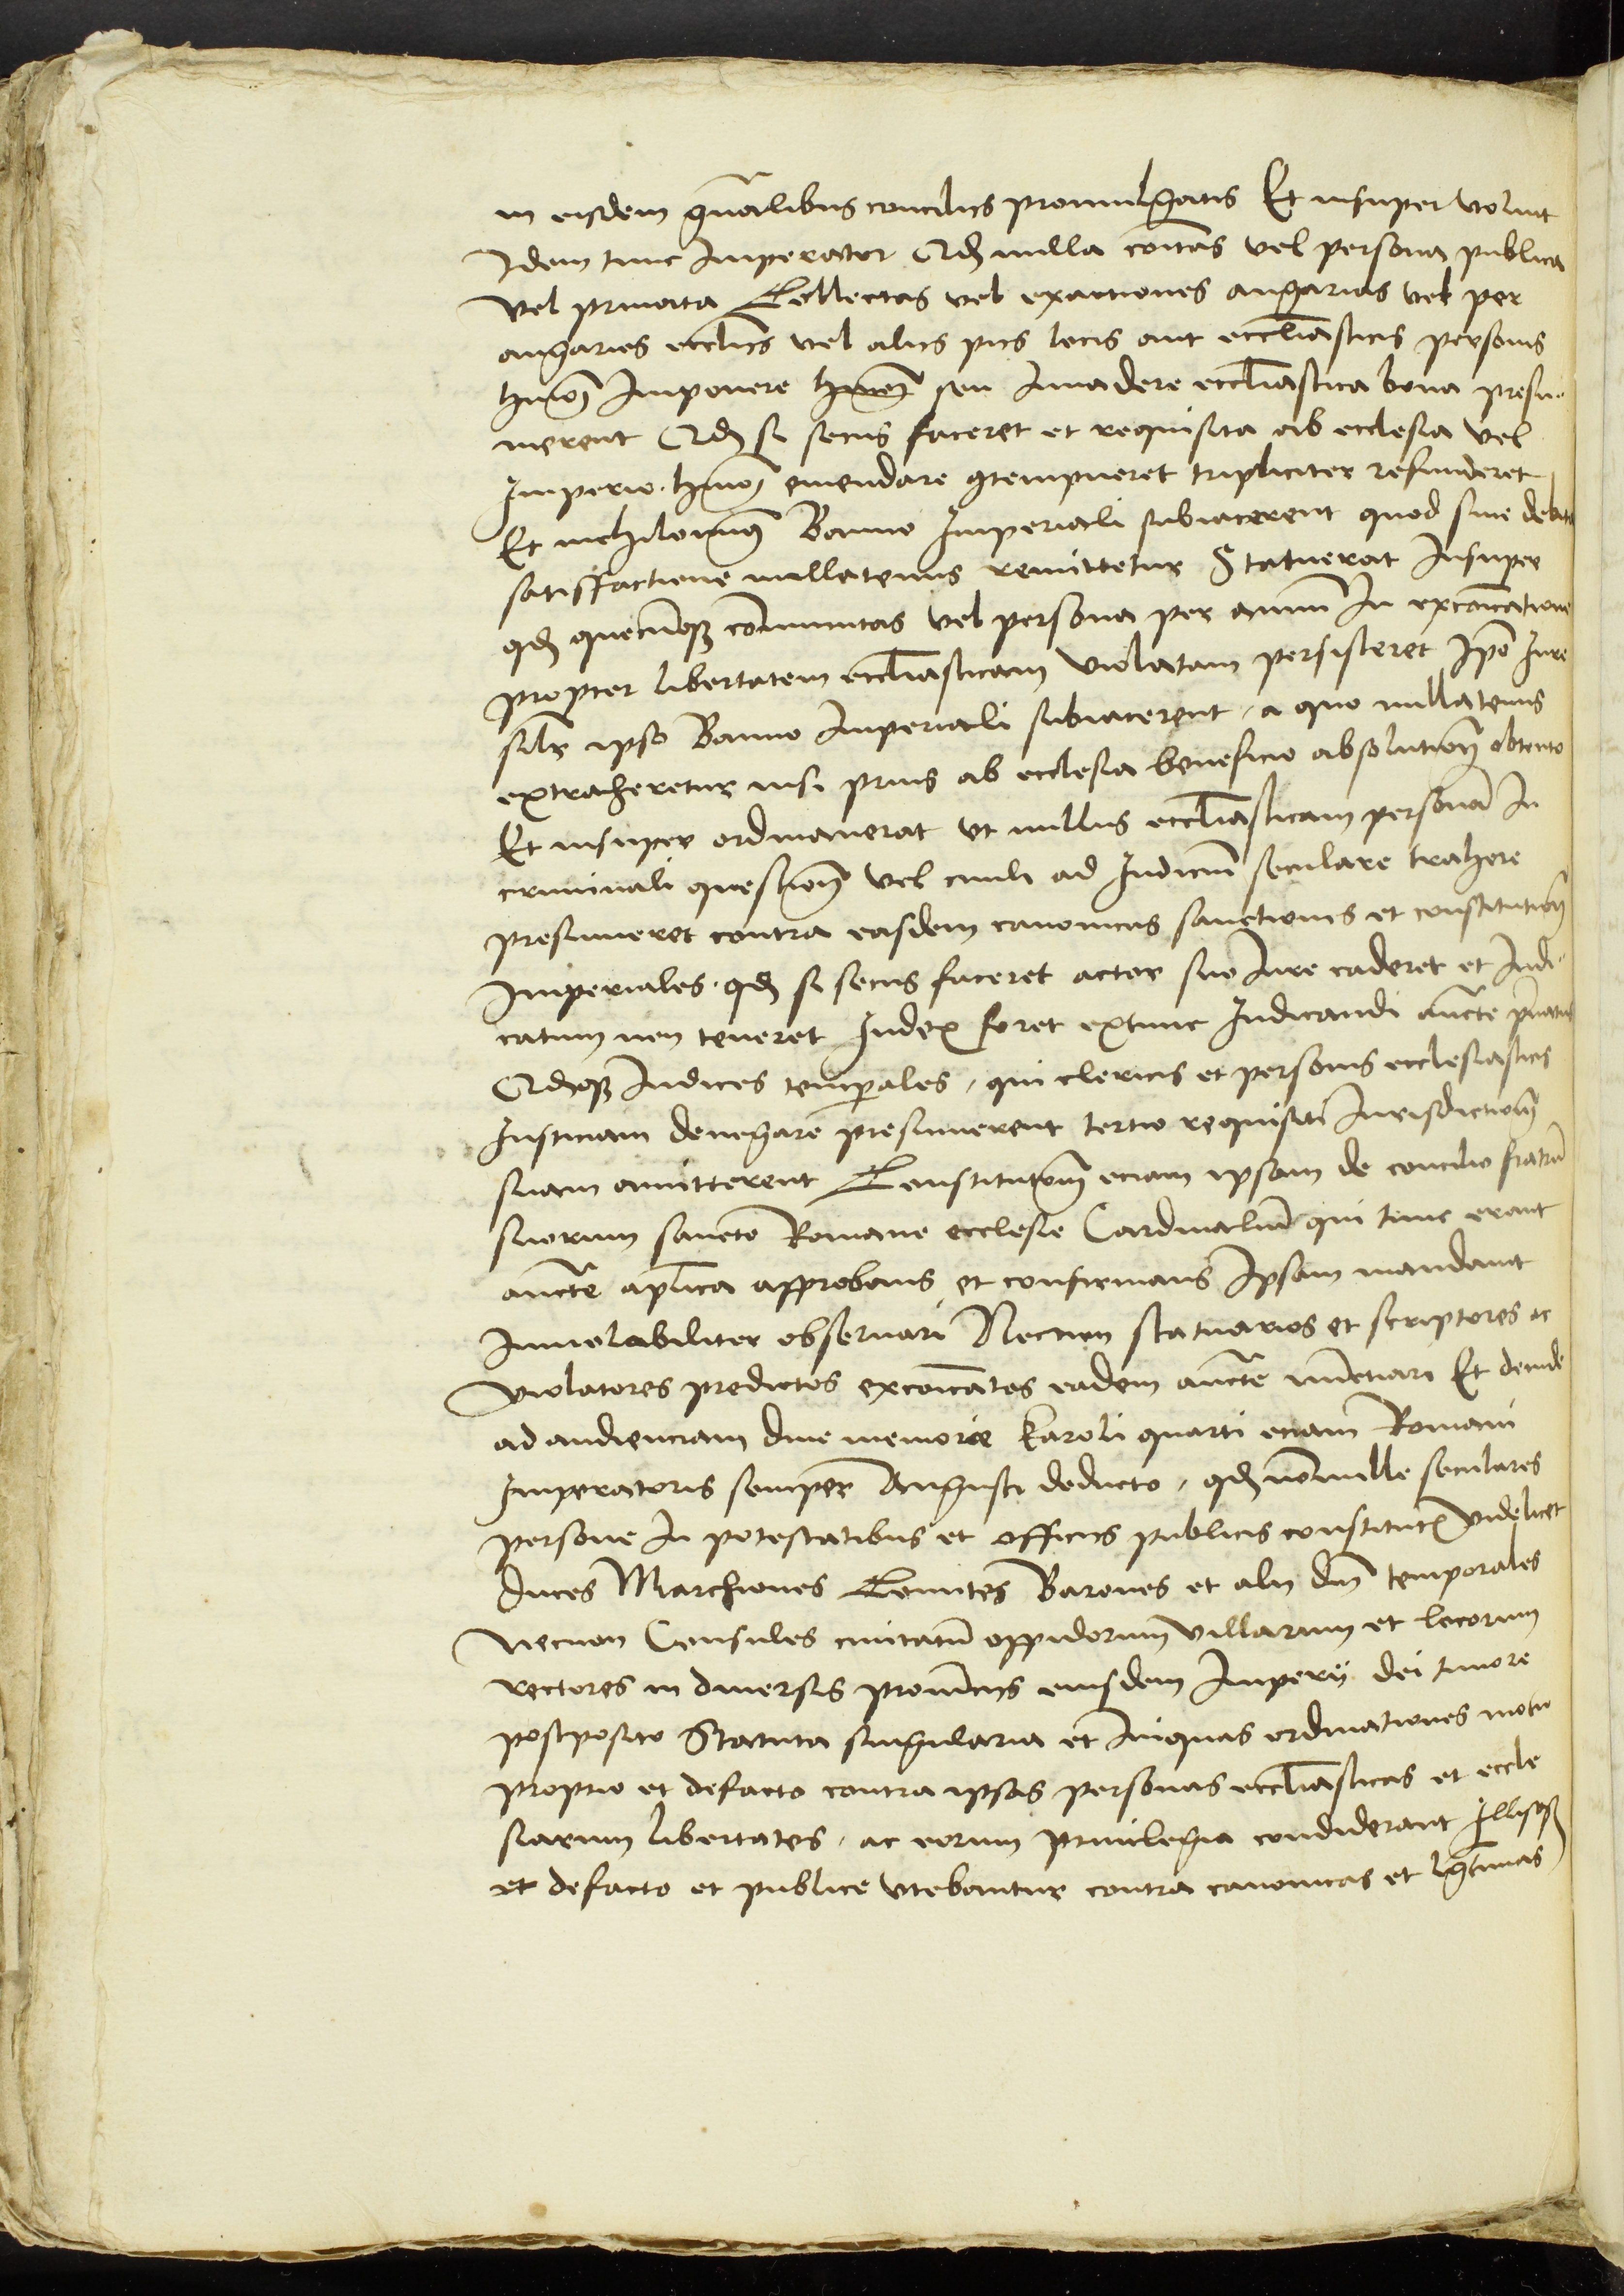 in eisdem gnalibus concilijs promulgatis Et insuper voluit
Idem tunc Imperator Qd nulla coitas vel persona publica
vel priuata Collectas vel exactiones angarias vel per
angarias ecclijs vel alijs pijs locis aut eccliasticis personis
hmoi Imponere hmoi seu Inuadere eccliastica bona presu-
merent Qd si secus faceret et requisita ab ecclesia vel
Imperio hmoi emendare contempneret tripliciter refunderet
Et nichilominus Banno Imperiali subiacerent quod sine debita
satisfactione nullatenus remittetur Statuerat Insuper
qd quecunqz communitas vel persona per annum In excoicatione
propter libertatem eccliasticam violatam persisteret Ipo Iure
silr ipso Banno Imperiali subiacerent, a quo nullatenus
extraheretur nisi prius ab ecclesia beneficio absolutionis obtento
Et insuper ordinauerat vt nullus eccliasticam persona In
criminali questione vel ciuili ad Iudiciu seculare trahere
presumeret contra easdem canonicas sanctiones et constitutiones
Imperiales. qd si secus faceret actor suo Iure caderet et Iudi-
catum non teneret Iudex foret extunc Iudicandi aucte priuatus
Qdqz Iudices temporales, qui clericis et personis ecclesiasticis
Iusticiam denegare presumerent tertio requisiti Iurisdictionem
suam amitterent Constitutionem eciam ipsam de concilio fratru
suorum sancte Romane ecclesie Cardinaliu qui tunc erant
aucte aplica approbans et confirmans Ipsam mandauit
Inuiolabiliter obseruari Necnon statuarios et scriptores ac
violatores predictos excoicatos eadem aucte nunctiari Et deinde
ad audienciam diue memorie Karoli quarti eciam Romani
Imperatoris semper Augusti deducto, qd nonnulle seculares
persone In potestatibus et officijs publicis constitute videlicet
Duces Marchiones Comites Barones et alij dni temporales
Necnon Consules ciuitatu oppidorum villarum et locorum
rectores in diuersis prouincijs eiusdem Imperij dei timore
postposito Statuta singularia et Iniquas ordinationes motu
proprio et defacto contra ipsas personas eccliasticas et eccle
siarum libertates, ac eorum priuilegia condiderant Illisqz
et defacto et publice vtebantur contra canonicas et lgtimas